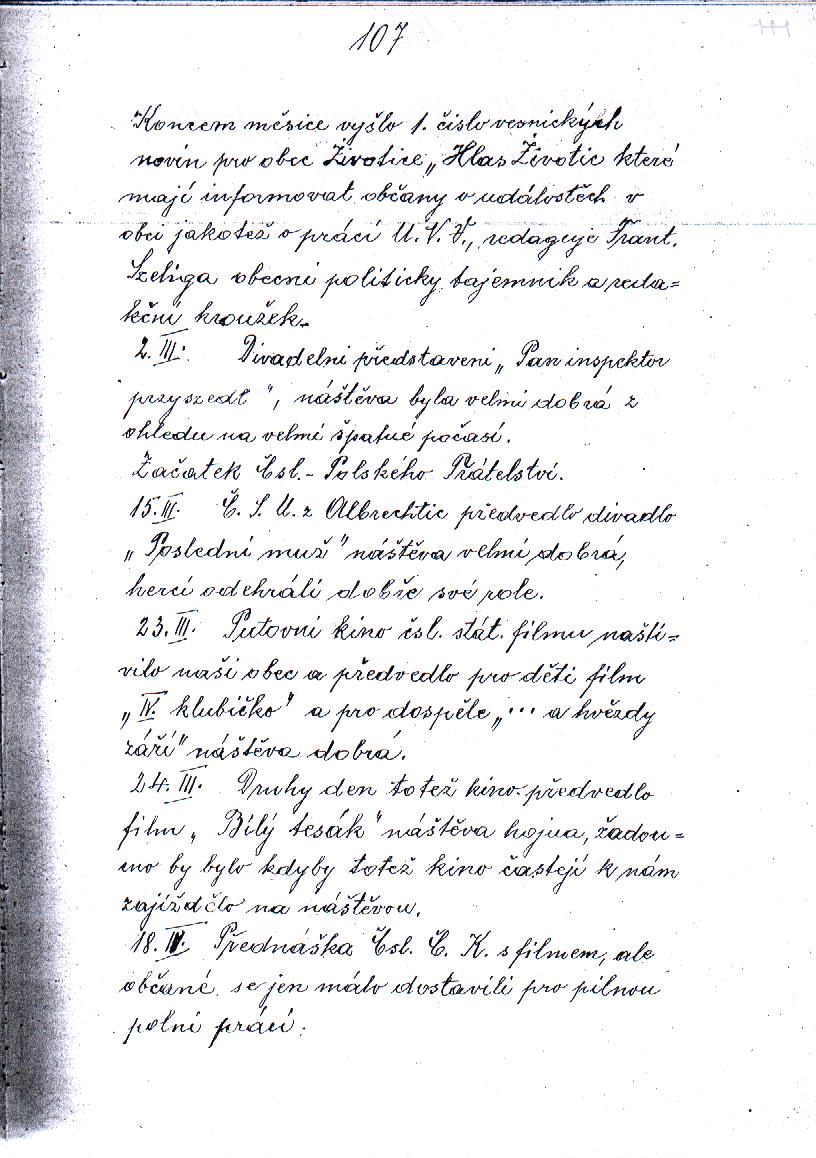 107
Koncem měsice vyšlo 1. čislo vesnických
novin pro obec Životice „Hlas Životic které
mají informovat občany o událostěch v
obci jakotež o práci U. V. V., redaguje Frant.
Szeliga obecni politicky tajemnik a reda=
kčni kroužek.
2. III. Divadelni představeni „Pan inspektor
przyszedł", náštěva byla velmi dobrá z
ohledu na velmi špatné počasí.
Začatek Čsl.- Polského Přátelství.
15. III. Č. S. U. z Albrechtic předvedlo divadlo
„Posledni muž" náštěva velmi dobrá,
herci odehráli dobře své role.
23. III. Putovni kino čsl. stát. filmu naští=
vilo naši obec a předvedlo pro děti film
„IV. klubičko" a pro dospěle „... a hvězdy
září" náštěva dobrá.
24. III. Druhy den totež kino předvedlo
film „Bílý tesák" náštěva hojna, žadou=
cno by bylo kdyby totež kino častejí k nám
zajíždělo na náštěvou.
18. IV. Přednáška Čsl. Č. K. s filmem, ale
občané se jen málo dostavili pro pilnou
polni práci.